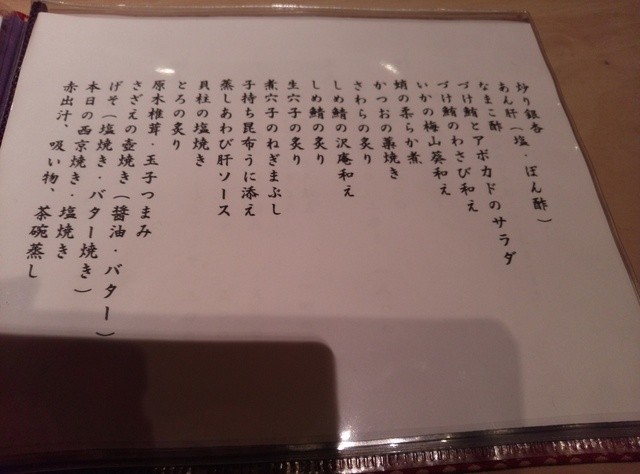 炒り銀杏
あん肝（塩・ぽん酢）
なまこ酢
づけ鮪とアボカドのサラダ
づけ鮪のわさび和え
いかの梅山葵和え
蛸の柔らか煮
かつおの藁焼き
さわらの炙り
しめ鯖の沢庵和え
しめ鯖の炙り
生穴子の炙り
煮穴子のねぎまぶし
子持ち昆布うに添え
蒸しあわび肝ソース
貝柱の塩焼き
とろの炙り
原木椎茸・玉子つまみ
さざえの壺焼き（醤油・バター）
げそ（塩焼き・バター焼き）
本日の西京焼き・塩焼き
赤出汁、吸い物、茶碗蒸し